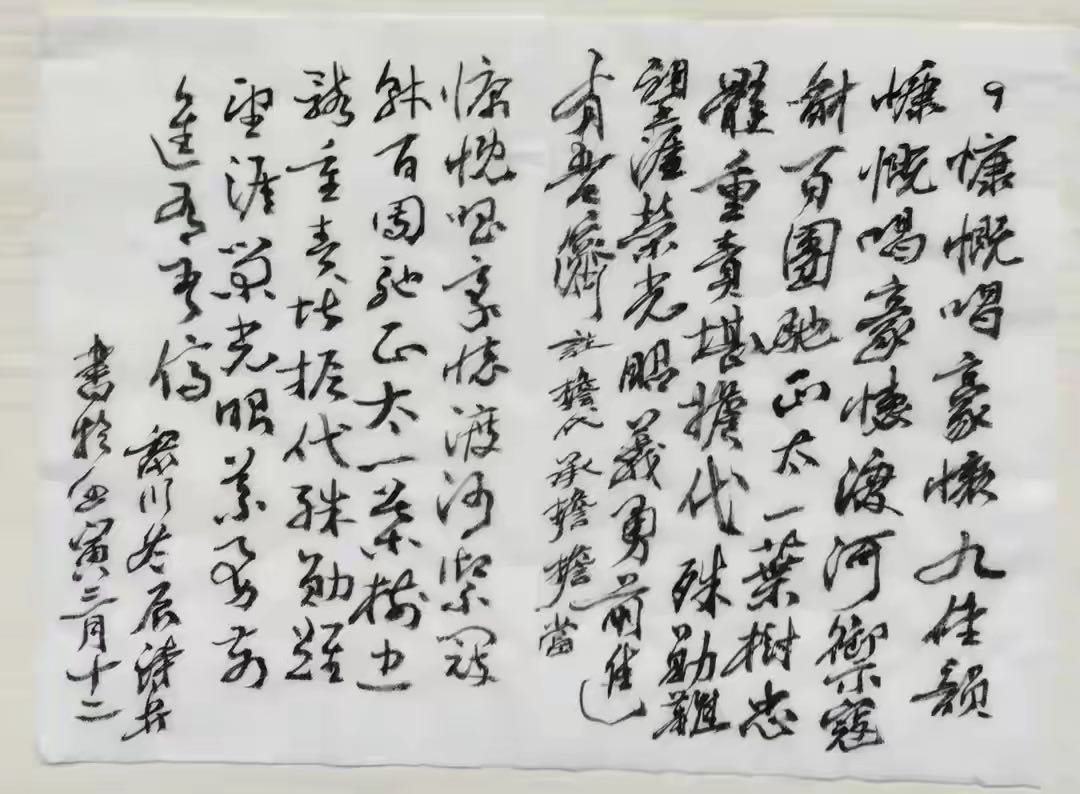 9 慷慨唱豪懷九佳韻
慷慨唱豪懷渡河禦寇
豺百團馳正太一葉樹忠
骸重責堪擔代殊勛難
望涯榮光昭義勇前進
有吾儕 註擔代承擔擔當
慷慨唱豪懷渡河禦寇
豺百團馳正太一葉樹忠
骸重責堪擔代殊勛難
望涯榮光昭義勇前
進有吾儕 辰詩并
書於壬寅三月十二